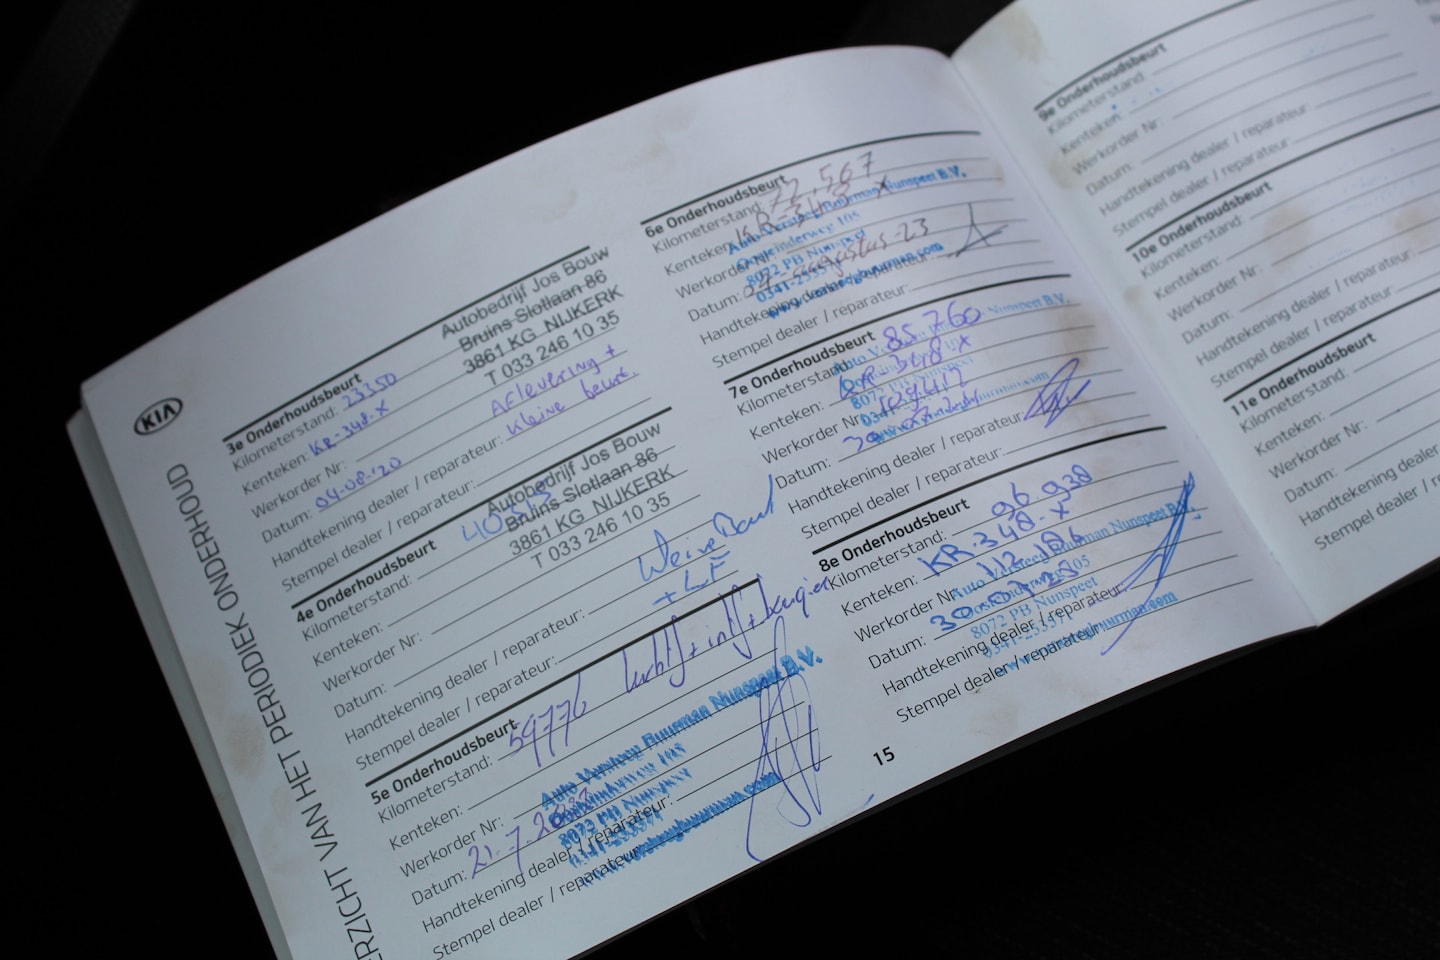 KIA
ERZICHT VAN HET PERIODIEK ONDERHOUD
3e Onderhoudsbeurt
Kilometerstand: 23350
Kenteken: KR-348-X
Werkorder Nr:
Datum: 04-08-'20
Handtekening dealer / reparateur:
Stempel dealer / reparateur:
Autobedrijf Jos Bouw
Bruins Slotlaan 86
3861 KG NIJKERK
T 033 246 10 35
Aflevering +
kleine beurt.
4e Onderhoudsbeurt
Kilometerstand:
Kenteken:
Werkorder Nr:
Datum:
Handtekening dealer / reparateur:
Stempel dealer / reparateur:
Autobedrijf Jos Bouw
Bruins Slotlaan 86
3861 KG NIJKERK
T 033 246 10 35
+ LF
5e Onderhoudsbeurt
Kilometerstand: 59776
Kenteken:
Werkorder Nr:
Datum: 21-7-2022
Handtekening dealer / reparateur:
Stempel dealer / reparateur:
Auto Versteeg Buurman Nunspeet B.V.
6e Onderhoudsbeurt
Kilometerstand: 72.567
Kenteken: KR-348-X
Werkorder Nr:
Datum: 04-augustus-23
Handtekening dealer / reparateur:
Stempel dealer / reparateur:
Auto Versteeg Buurman Nunspeet B.V.
8072 PB Nunspeet
7e Onderhoudsbeurt
Kilometerstand: 85.760
Kenteken: KR 348 X
Werkorder Nr:
Datum:
Handtekening dealer / reparateur:
Stempel dealer / reparateur:
8e Onderhoudsbeurt
Kilometerstand: 96.938
Kenteken: KR-348-X
Werkorder Nr: 112.186
Datum: 30-07-25
Handtekening dealer / reparateur:
Stempel dealer / reparateur:
Auto Versteeg Buurman Nunspeet B.V.
8072 PB Nunspeet
15
9e Onderhoudsbeurt
Kilometerstand:
Kenteken:
Werkorder Nr:
Datum:
Handtekening dealer / reparateur:
Stempel dealer / reparateur:
10e Onderhoudsbeurt
Kilometerstand:
Kenteken:
Werkorder Nr:
Datum:
Handtekening dealer / reparateur:
Stempel dealer / reparateur:
11e Onderhoudsbeurt
Kilometerstand:
Kenteken:
Werkorder Nr:
Datum:
Handtekening dealer
Stempel dealer /